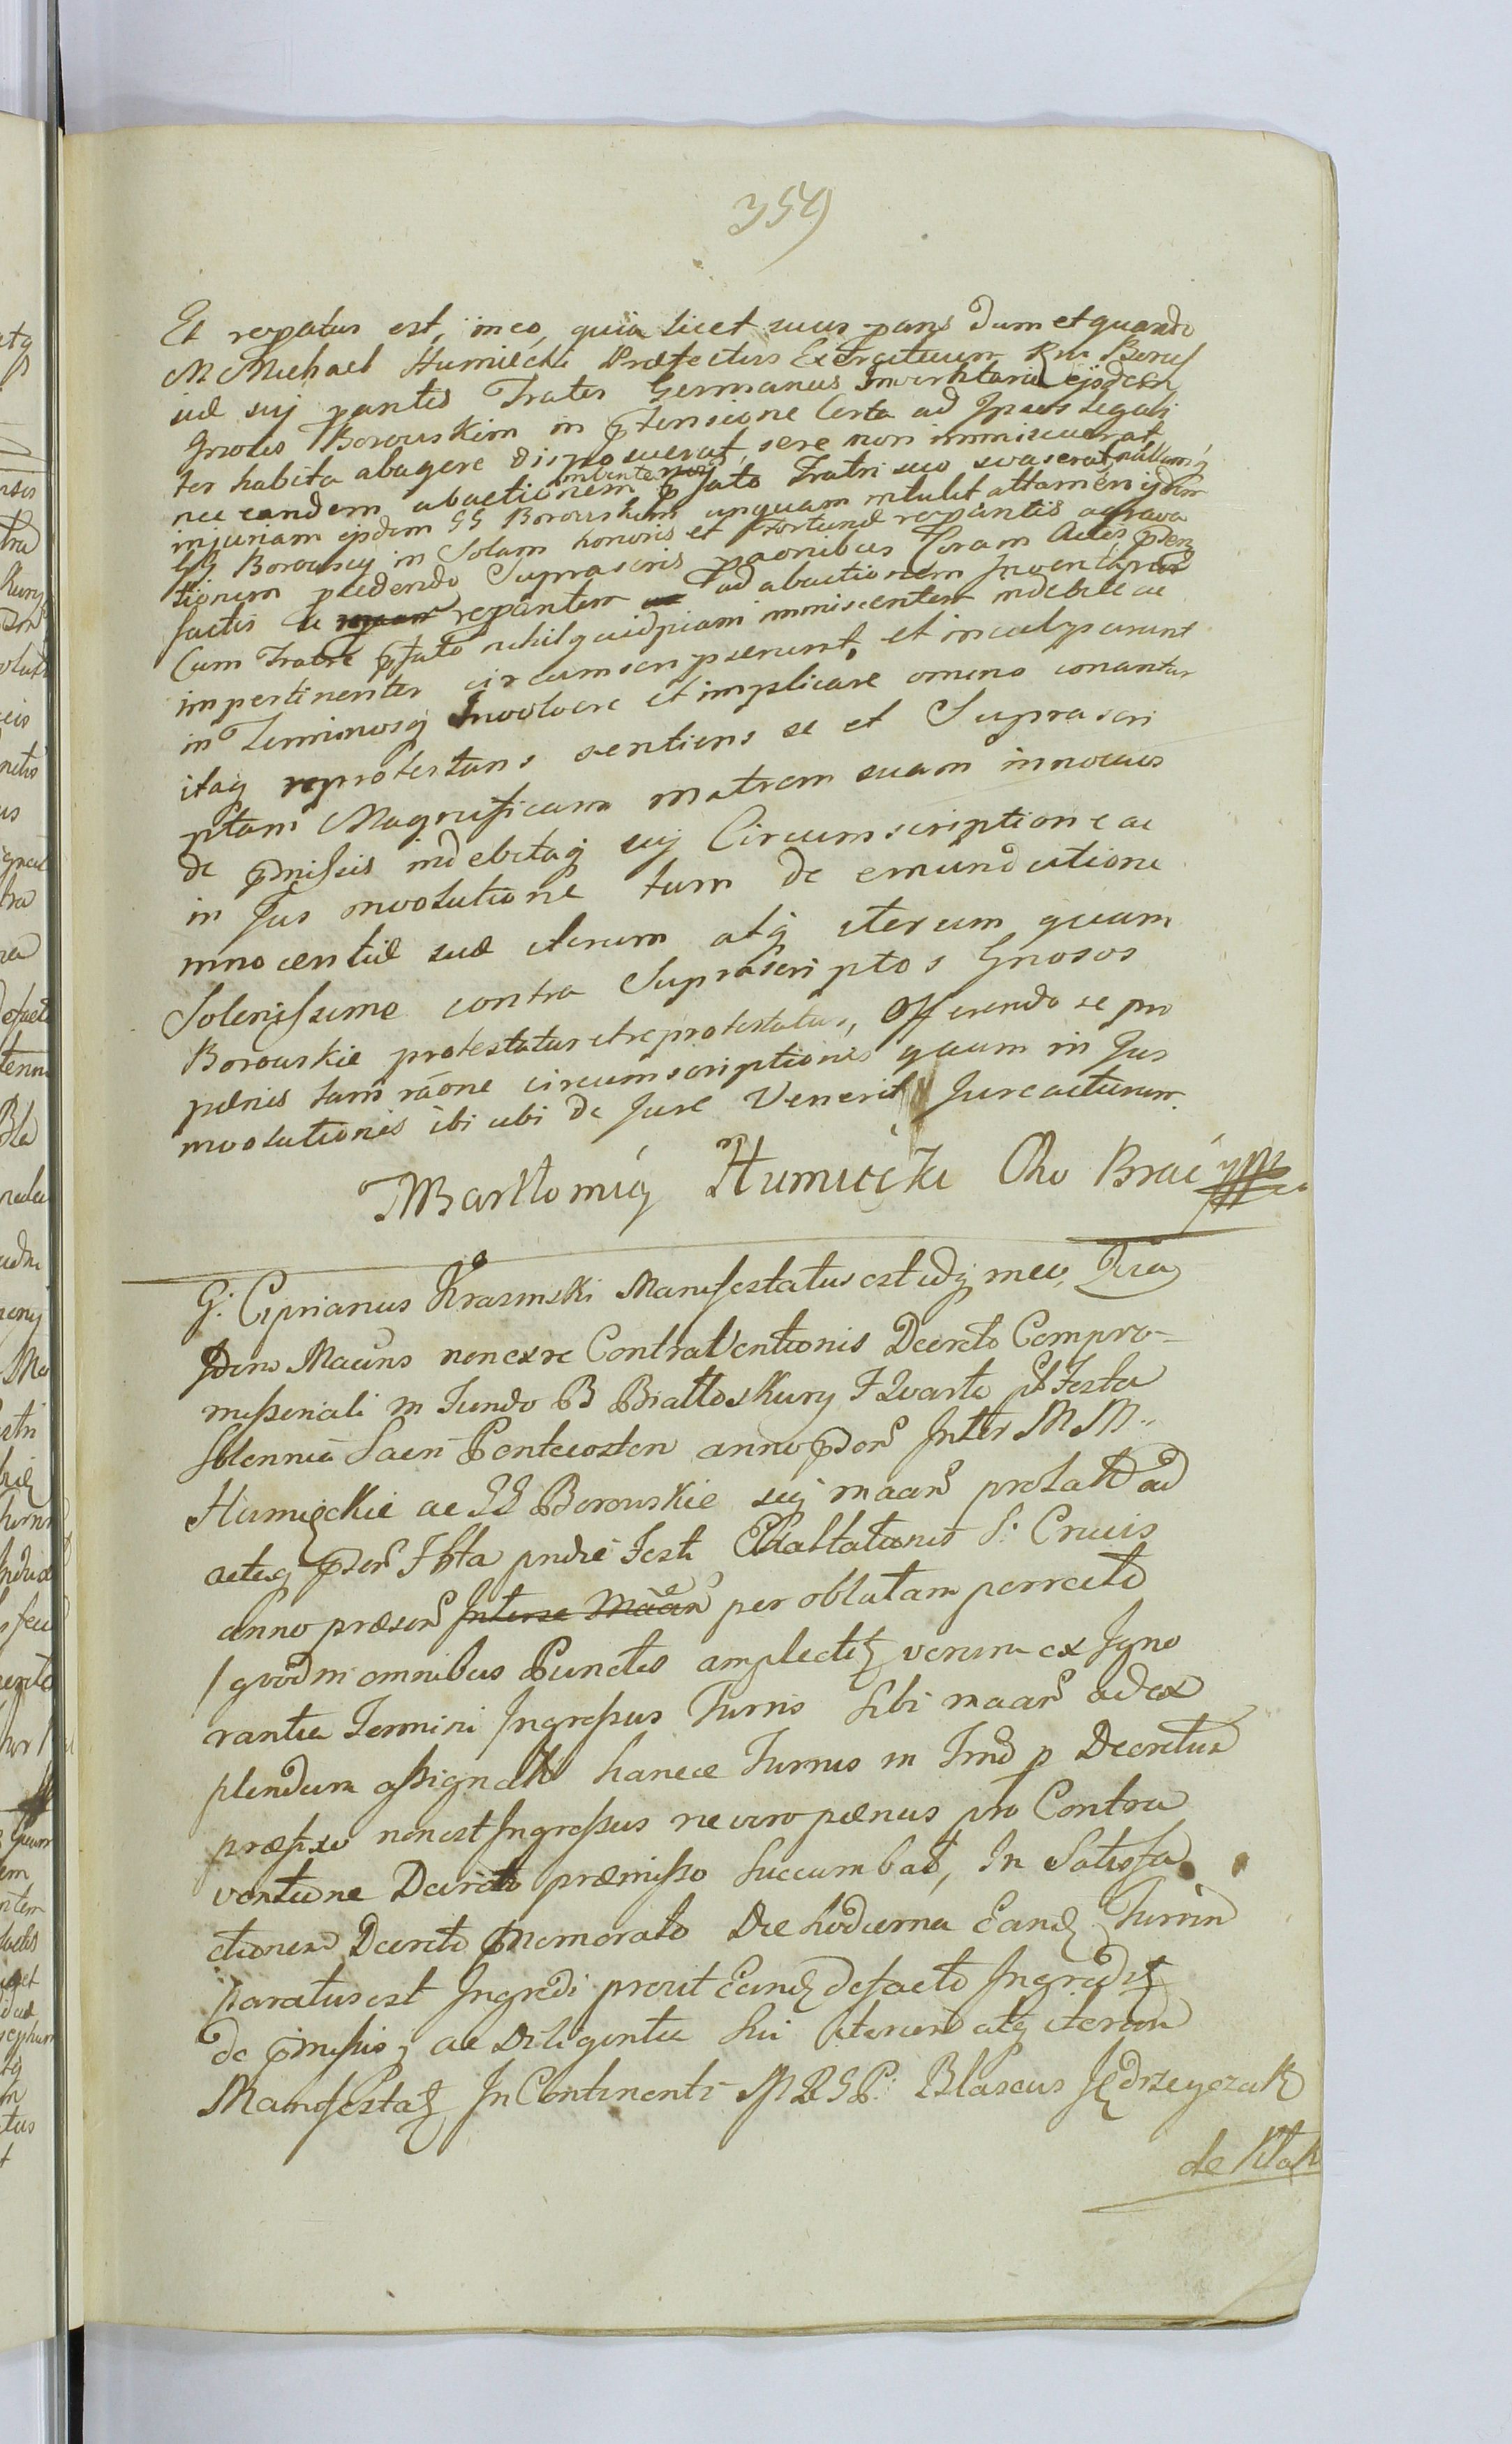 354
Et repatus est, in eo, quia licet suus pans dum et quando
M Michael Humiecki Præfectus Exercituum
iæ suj pantis Frater Germanus Inventaria ejsdem
Gnosis Borowskim in ptensione Certa ad Ipsos legali
ter habita abagere disposuerat, sese non immiscuerat
nec eandem abactionem pfato Fratri suo suaserat, nullamq
injuriam ijsdem GG Borowskim unquam intulit attamen ijdem
GG Borowscy in Solam honoris et Fortunæ repantis aggrava
tionem prædendo Suprascris paonibus Coram Actis psen
factis repantem ad abactionem Inventarior
Cum Fratre pfato nihil quidpiam immiscentem indebite ac
impertinenter circumscripserunt, et inculparunt
in Terminosq Involvere et implicare omino conantur
itaq reprotestans sentiens se et Suprascri
ptam Magnificam matrem suam innocuos
de pmissis indebitaq suj Circumscriptione ac
in Jus involutione tum de emundatione
innocentiæ suæ iterum atq iterum quam
Solenissime contra Suprascriptos Gnosos
Borowskie protestatur et reprotestatur, Offerendo se pro
pænis tam raone circumscriptionis quam in Jus
involutionis ibi ubi de Jure Venerit Jure acturum
Bartłomiy Humiecki Cho Brac
G: Ciprianus Krasinski Manifestatus est idq in eo, Quia
Idem Maans non ex re ContraVentionis Decreto Compro-
missoriali in Fundo B Białloskury F Quarta pt Festa
Solennia Sacri Pentecosten anno psen Inter MM
Humięckie ac GG Borowskie suj maan prolato ad
actaq psen Fta pridie Festi Exaltationis S: Crucis
anno præsen Inter se Maan per oblatam porrecto
/ quod in omnibus Punctis amplectit, verum ex Igno
rantia Termini Ingressus Turris sibi maan ad ex
plendum assignati hancce Turris in Tmo p Decretum
præfixo non est Ingressus ne vero pænis pro Contra
ventione Decreto præmisso Succumbat, In Satisfa
ctionem Decreti pmemorato Die hodierna Eand Turrim
paratus est Ingredi prout Eand defacto Ingredit
de pmissis ac Diligentia Sui iterum atq iterum
Manifestat In Continenti MRGP: Blaseus Jędrzeyczak
de